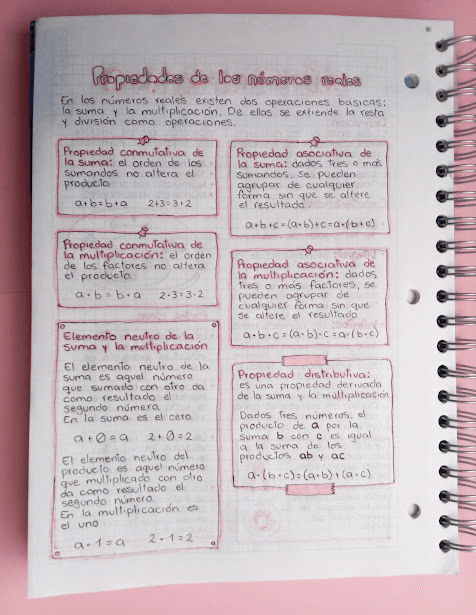 Propiedades de los números reales
En los números reales existen dos operaciones básicas:
la suma y la multiplicación. De ellas se extiende la resta
y división como operaciones.
Propiedad conmutativa de
la suma: el orden de los
sumandos no altera el
producto
a+b=b+a 2+3=3+2
Propiedad conmutativa de
la multiplicación: el orden
de los factores no altera
el producto
a·b=b·a 2·3=3·2
Elemento neutro de la
suma y la multiplicación
El elemento neutro de la
suma es aquel número
que sumado con otro da
como resultado el
segundo número.
En la suma es el cero
a+0=a 2+0=2
El elemento neutro del
producto es aquel número
que multiplicado con otro
da como resultado el
segundo número.
En la multiplicación es
el uno
a·1=a 2·1=2
Propiedad asociativa de
la suma: dados tres o más
sumandos, se pueden
agrupar de cualquier
forma sin que se altere
el resultado
a+b+c=(a+b)+c=a+(b+c)
Propiedad asociativa de
la multiplicación: dados
tres o más factores, se
pueden agrupar de
cualquier forma sin que
se altere el resultado
a·b·c=(a·b)·c=a·(b·c)
Propiedad distributiva:
es una propiedad derivada
de la suma y la multiplicación
Dados tres números, el
producto de a por la
suma b con c es igual
a la suma de los
productos ab y ac
a·(b+c)=(a·b)+(a·c)